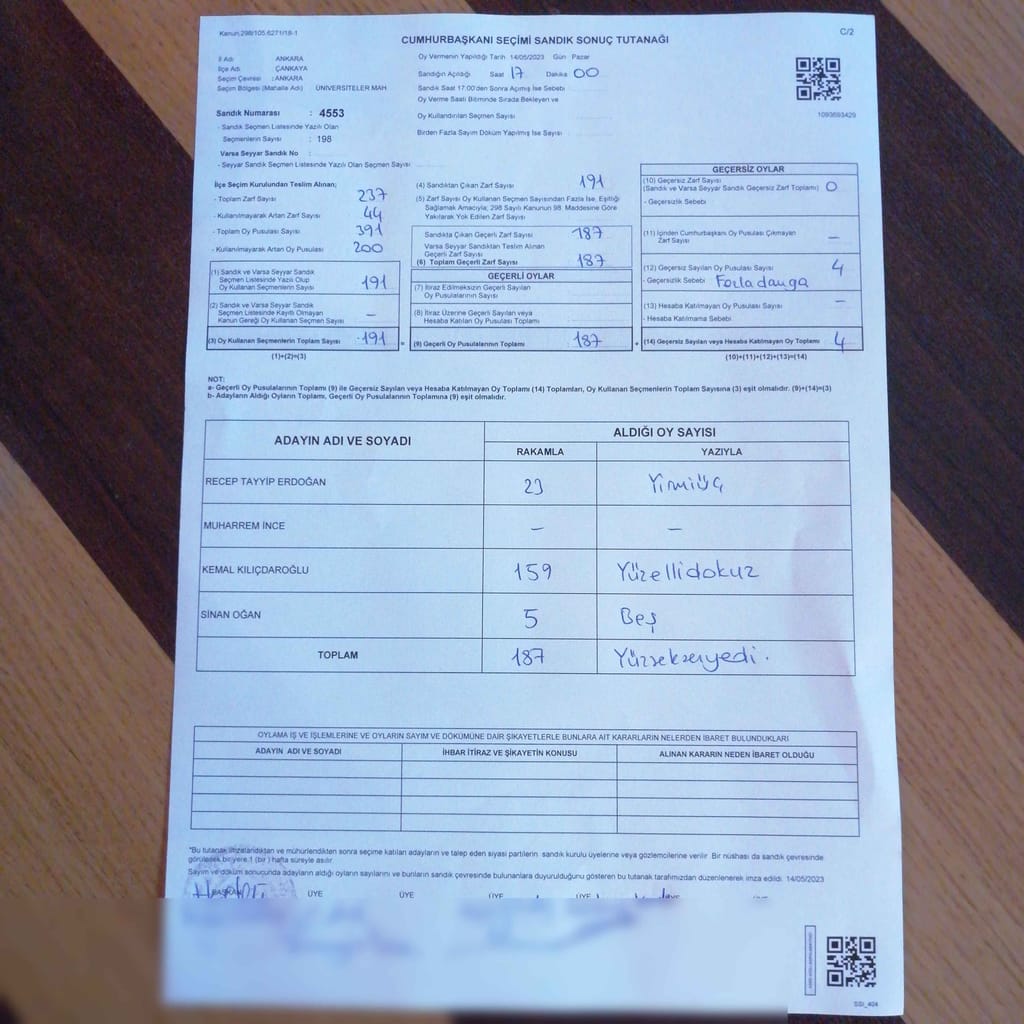 Kanun,298/105.6271/18-1
C/2
CUMHURBAŞKANI SEÇİMİ SANDIK SONUÇ TUTANAĞI
İl Adı ANKARA
İlçe Adı ÇANKAYA
Seçim Çevresi : ANKARA
Seçim Bölgesi (Mahalle Adı) ÜNİVERSİTELER MAH
Sandık Numarası : 4553
- Sandık Seçmen Listesinde Yazılı Olan
Seçmenlerin Sayısı : 198
Varsa Seyyar Sandık No :
- Seyyar Sandık Seçmen Listesinde Yazılı Olan Seçmen Sayısı
Oy Vermenin Yapıldığı Tarih 14/05/2023 Gün Pazar
Sandığın Açıldığı Saat 17 Dakika 00
Sandık Saat 17.00'den Sonra Açılmış İse Sebebi
Oy Verme Saati Bitiminde Sırada Bekleyen ve
Oy Kullandırılan Seçmen Sayısı
Birden Fazla Sayım Döküm Yapılmış İse Sayısı
1093693429
İlçe Seçim Kurulundan Teslim Alınan;
- Toplam Zarf Sayısı 237
- Kullanılmayarak Artan Zarf Sayısı 44
- Toplam Oy Pusulası Sayısı 391
- Kullanılmayarak Artan Oy Pusulası 200
(1) Sandık ve Varsa Seyyar Sandık
Seçmen Listesinde Yazılı Olup
Oy Kullanan Seçmenlerin Sayısı 191
(2) Sandık ve Varsa Seyyar Sandık
Seçmen Listesinde Kayıtlı Olmayan
Kanun Gereği Oy Kullanan Seçmen Sayısı –
(3) Oy Kullanan Seçmenlerin Toplam Sayısı 191 =
(1)+(2)=(3)
(4) Sandıktan Çıkan Zarf Sayısı 191
(5) Zarf Sayısı Oy Kullanan Seçmen Sayısından Fazla İse, Eşitliği
Sağlamak Amacıyla; 298 Sayılı Kanunun 98. Maddesine Göre
Yakılarak Yok Edilen Zarf Sayısı
Sandıkta Çıkan Geçerli Zarf Sayısı 187
Varsa Seyyar Sandıktan Teslim Alınan
Geçerli Zarf Sayısı
(6) Toplam Geçerli Zarf Sayısı 187
GEÇERLİ OYLAR
(7) İtiraz Edilmeksizin Geçerli Sayılan
Oy Pusulalarının Sayısı
(8) İtiraz Üzerine Geçerli Sayılan veya
Hesaba Katılan Oy Pusulası Toplamı
(9) Geçerli Oy Pusulalarının Toplamı 187 +
GEÇERSİZ OYLAR
(10) Geçersiz Zarf Sayısı
(Sandık ve Varsa Seyyar Sandık Geçersiz Zarf Toplamı) 0
- Geçersizlik Sebebi
(11) İçinden Cumhurbaşkanı Oy Pusulası Çıkmayan
Zarf Sayısı –
(12) Geçersiz Sayılan Oy Pusulası Sayısı 4
- Geçersizlik Sebebi Fazla damga
(13) Hesaba Katılmayan Oy Pusulası Sayısı –
- Hesaba Katılmama Sebebi
(14) Geçersiz Sayılan veya Hesaba Katılmayan Oy Toplamı 4
(10)+(11)+(12)+(13)=(14)
NOT:
a- Geçerli Oy Pusulalarının Toplamı (9) ile Geçersiz Sayılan veya Hesaba Katılmayan Oy Toplamı (14) Toplamları, Oy Kullanan Seçmenlerin Toplam Sayısına (3) eşit olmalıdır. (9)+(14)=(3)
b- Adayların Aldığı Oyların Toplamı, Geçerli Oy Pusulalarının Toplamına (9) eşit olmalıdır.
ADAYIN ADI VE SOYADI
ALDIĞI OY SAYISI
RAKAMLA YAZIYLA
RECEP TAYYİP ERDOĞAN 23 Yirmiüç
MUHARREM İNCE – –
KEMAL KILIÇDAROĞLU 159 Yüzellidokuz
SİNAN OĞAN 5 Beş
TOPLAM 187 Yüzseksenyedi.
OYLAMA İŞ VE İŞLEMLERİNE VE OYLARIN SAYIM VE DÖKÜMÜNE DAİR ŞİKAYETLERLE BUNLARA AİT KARARLARIN NELERDEN İBARET BULUNDUKLARI
ADAYIN ADI VE SOYADI İHBAR İTİRAZ VE ŞİKAYETİN KONUSU ALINAN KARARIN NEDEN İBARET OLDUĞU
*Bu tutanak imzalandıktan ve mühürlendikten sonra seçime katılan adayların ve talep eden siyasi partilerin sandık kurulu üyelerine veya gözlemcilerine verilir. Bir nüshası da sandık çevresinde
görülecek bir yere 1 (bir) hafta süreyle asılır.
Sayım ve döküm sonucunda adayların aldığı oyların sayılarını ve bunların sandık çevresinde bulunanlara duyurulduğunu gösteren bu tutanak tarafımızdan düzenlenerek imza edildi. 14/05/2023
BAŞKAN ÜYE ÜYE ÜYE ÜYE ÜYE ÜYE
SSI_404